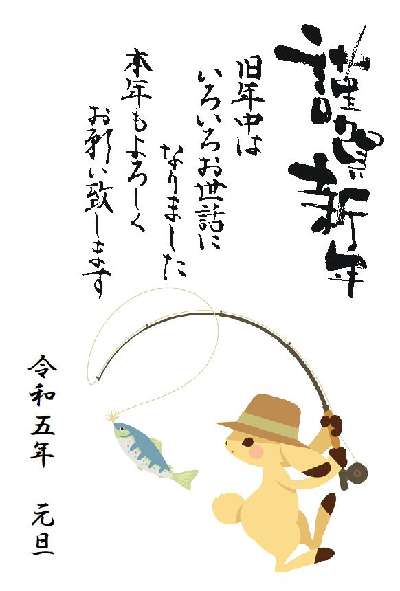 謹賀新年
旧年中は
いろいろお世話に
なりました
本年もよろしく
お願い致します
令和五年 元旦